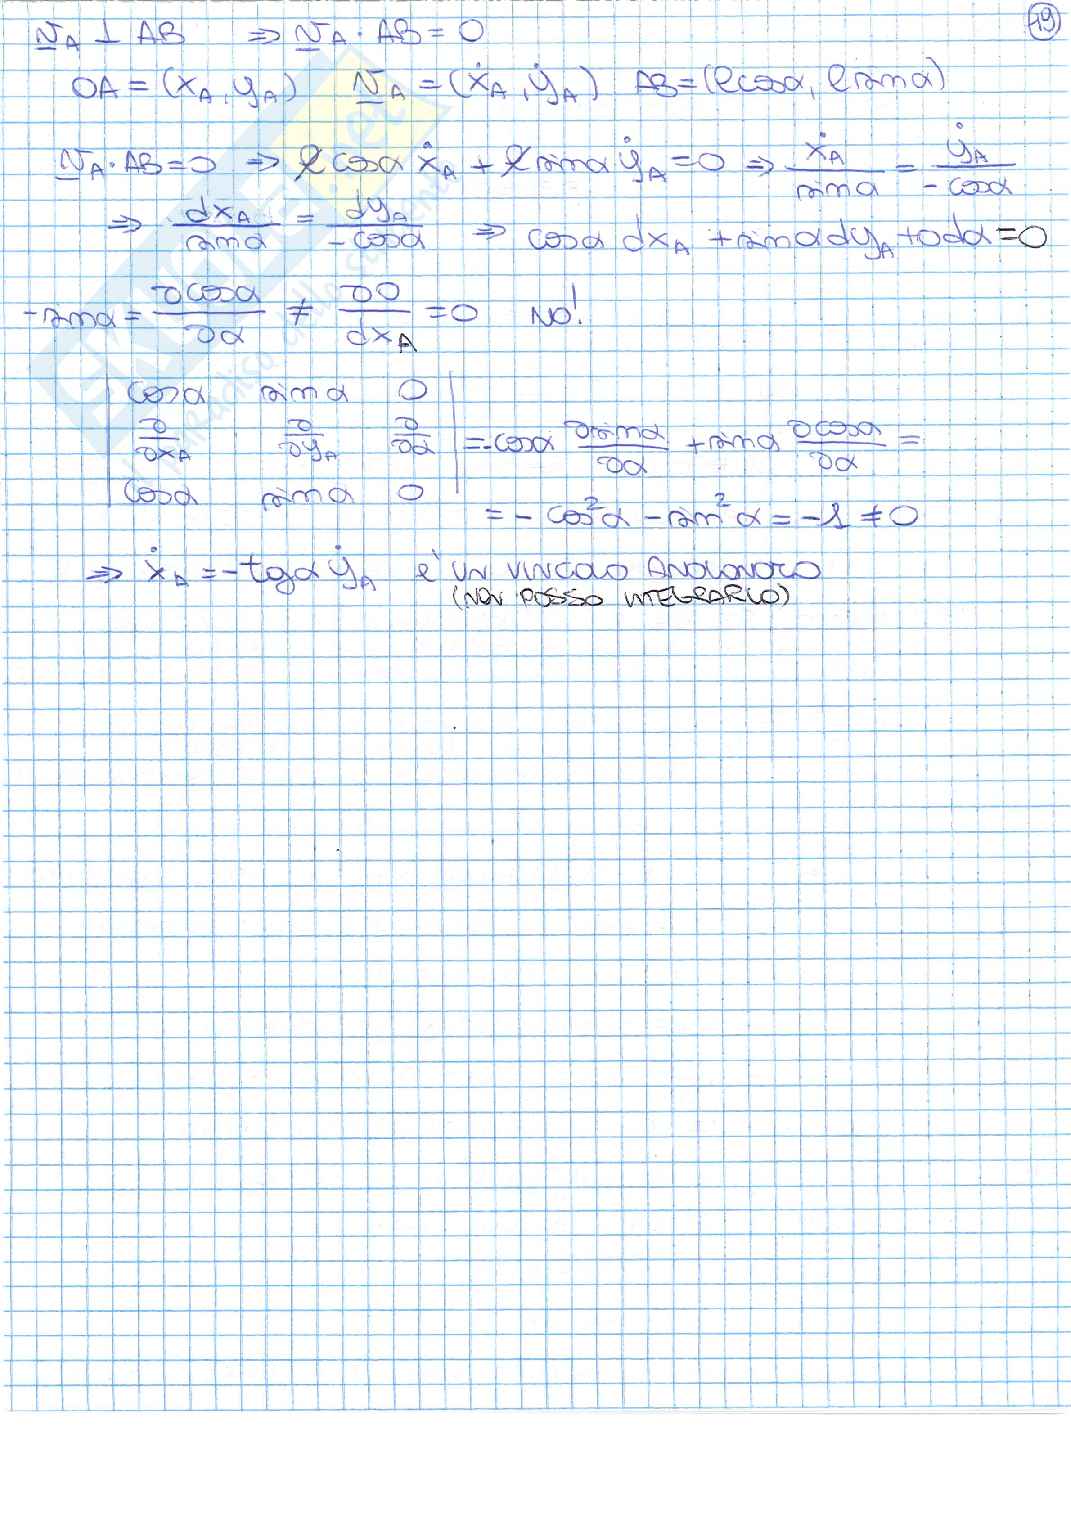 19
v_A ⊥ AB ⇒ v_A · AB = 0
OA = (x_A, y_A) v_A = (ẋ_A, ẏ_A) AB = (ℓcosα, ℓsinα)
v_A · AB = 0 ⇒ ℓcosα ẋ_A + ℓsinα ẏ_A = 0 ⇒ ẋ_A/sinα = ẏ_A/-cosα
⇒ dx_A/sinα = dy_A/-cosα ⇒ cosα dx_A + sinα dy_A + 0dα = 0
-sinα = ∂cosα/∂α ≠ ∂0/dx_A = 0 NO!
| cosα sinα 0 |
| ∂/∂x_A ∂/∂y_A ∂/∂α | = -cosα ∂sinα/∂α + sinα ∂cosα/∂α =
| cosα sinα 0 |
= -cos²α - sin²α = -1 ≠ 0
⇒ ẋ_A = -tgα ẏ_A è UN VINCOLO ANOLONOMO
(NON POSSO INTEGRARLO)